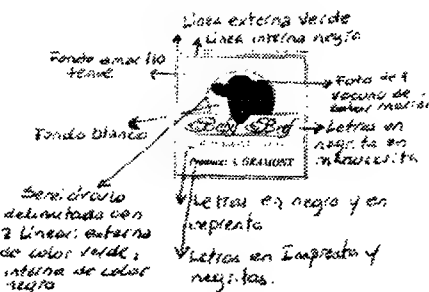 Linea externa verde
Linea interna negra
Fondo amarillo
tenue
Foto de 1
vacuno de
color
Fondo blanco
Letras en
negrita en
manuscrita
Beef
A. GRAMONT
Semicirculo
delimitado con
2 lineas: externa
de color verde,
interna de color
negro
Letras en negro y en
imprenta
Letras en Imprenta y
negritas.